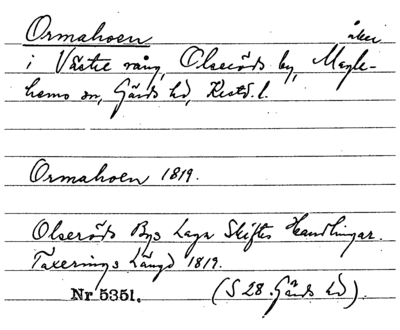 Ormahoen åker
i Västre vång, Olseröds by, Magle-
hems sn, Gärds hd, Kristd. l.
Ormahoen 1819.
Olseröds Bys Laga Skiftes Handlingar.
Taxerings Längd 1819.
Nr 5351. (S 28 Gärds hd).